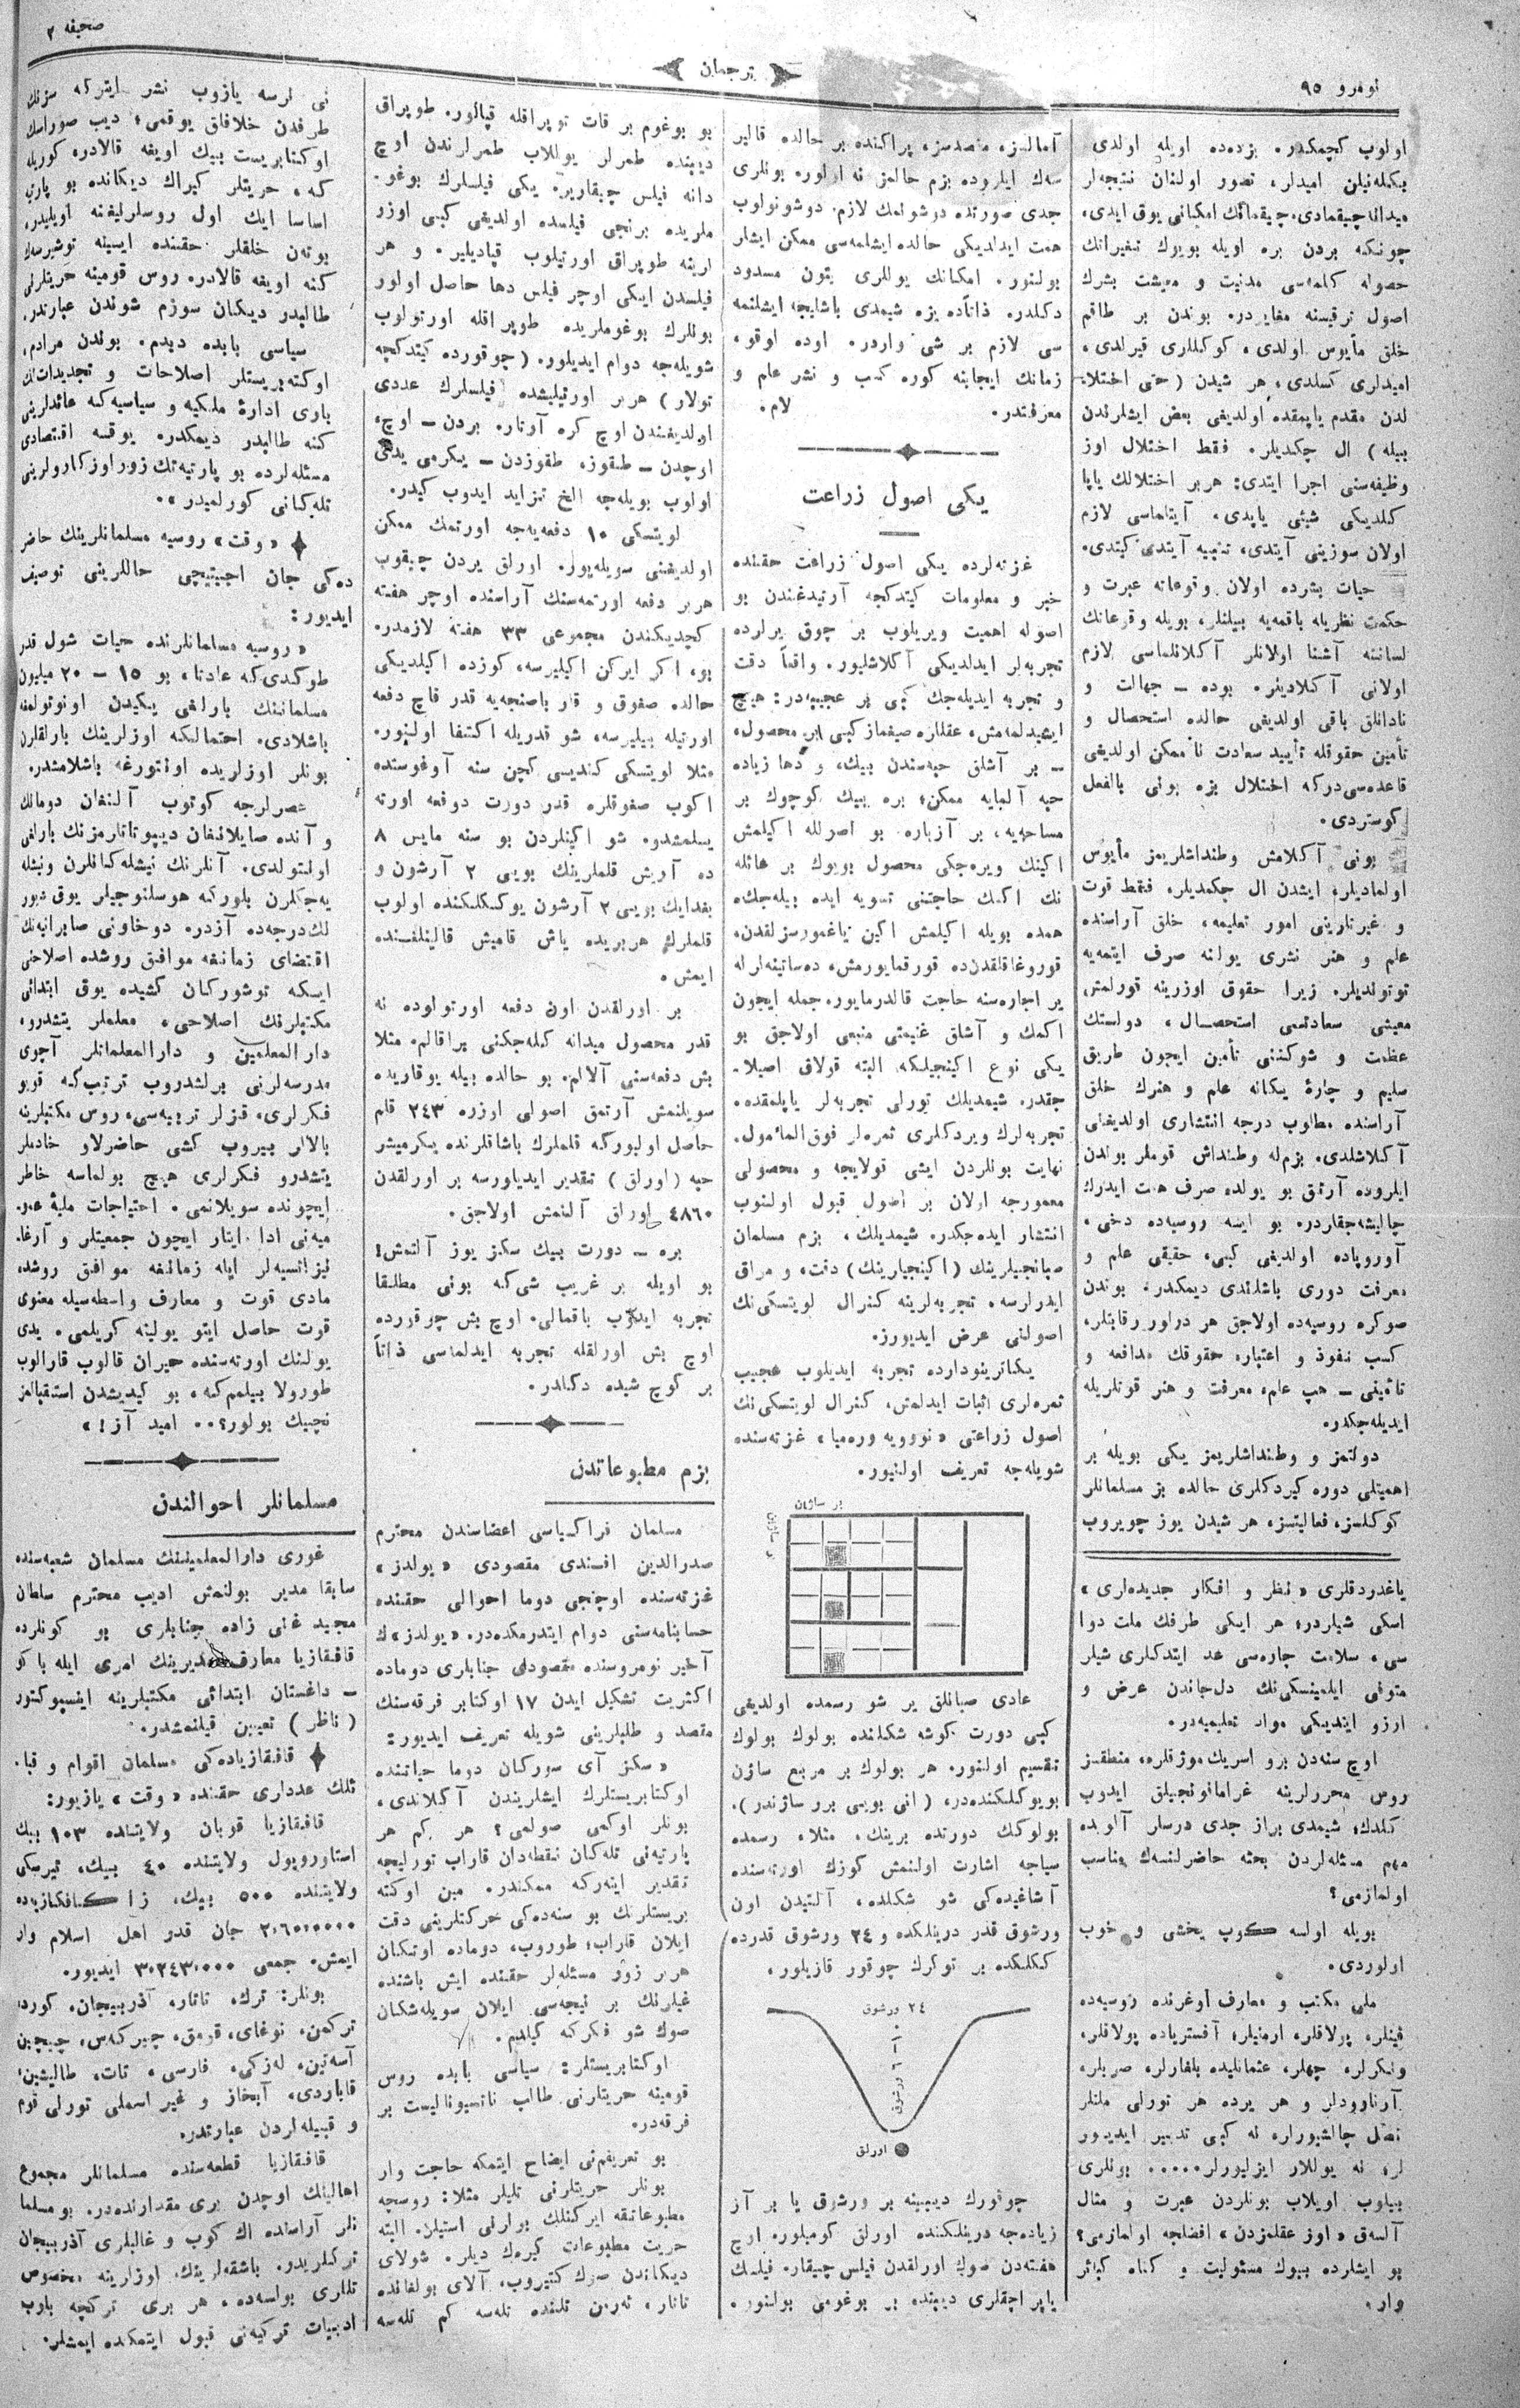 نومرو ٩٥
ترجمان
صحیفه ٢
اولوب كچمكدر. بزده‌ده اویله اولدی
بكله‌نیلن امیدلر، تصور اولنان نتیجه‌لر
میدانه چیقمادی، چیقمانك امكانی یوق ایدی،
چونكه بردن بره اویله بویوك تغیراتك
حصوله كلمه‌سی مدنیت و معیشت بشرك
اصول ترقیسنه مغایردر. بوندن بر طاقم
خلق مأیوس اولدی، كوكللری قیرلدی،
امیدلری كسلدی، هر شیدن (حتی اختلا‌
لدن مقدم یاپمقده اولدیغی بعض ایشلرندن
بیله) ال چكدیلر. فقط اختلال اوز
وظیفه‌سنی اجرا ایتدی: هربر اختلالك یاپا
كلدیكی شیئی یاپدی، آیتلماسی لازم
اولان سوزینی آیتدی، تنبیه آیتدی كیتدی.
حیات بشرده اولان وقوعاته عبرت و
حكمت نظریله باقمه‌یه بیلنلر، بویله وقوعاتك
لساننه آشنا اولانلر آكلانلماسی لازم
اولانی آكلادیلر. بوده — جهالت و
نادانلق باقی اولدیغی حالده استحصال و
تأمین حقوقله تأیید سعادت نا ممكن اولدیغی
قاعده‌سی‌دركه اختلال بزه بونی بالفعل
كوستردی.
بونی آكلامش وطنداشلریمز مأیوس
اولمادیلر؛ ایشدن ال چكمدیلر، فقط قوت
و غیرتارینی امور تعلیمه، خلق آراسنده
علم و هنر نشری یولنه صرف ایتمه‌یه
توتولدیلر. زیرا حقوق اوزرینه قورلمش
معیشی سعادتمی استحصـال، دولتك
عظمت و شوكتنی تأمین ایچون طریق
سلیم و چارۀ یكانه علم و هنرك خلق
آراسنده مطلوب درجه انتشاری اولدیغی
آكلاشلدی. بزم‌له وطنداش قوملر بوندن
ایلروده آرتق بو یولده صرف همت ایدرك
چالیشه‌جقلردر. بو ایسه روسیه‌ده دخی،
آوروپاده اولدیغی كبی، حقیقی علم و
معرفت دوری باشلاندی دیمكدر. بوندن
صوكره روسیه‌ده اولاجق هر درلو رقابتلر،
كسب نفوذ و اعتبار، حقوقك مدافعه و
تأمینی — هپ علم، معرفت و هنر قوتلریله
ایدیله‌جكدر.
دولتمز و وطنداشلریمز یكی بویله بر
اهمیتلی دوره كیردكلری حالده بز مسلمانلر
كوكلسز، فعالیتسز، هر شیدن یوز چویروب
یاغدردقلری «نظر و افكار جدیده‌لری»
اسكی شیلردر؛ هر ایكی طرفك ملت دوا
سی، سلامت چاره‌سی عد ایتدكلری شیلر
متوفی ایلمینسكی‌نك دل‌جاندن عرض و
ارزو ایتدیكی مواد تعلیمیه‌در.
اوچ سنه‌دن برو اسریك موژقلره، منطقسز
روس محررلرینه غراماافونجیلق ایدوب
كلدك؛ شیمدی براز جدی درسلر آلوبده
مهم مسئله‌لردن بحثه حاضرلنسه‌ك مناسب
اولمازمی؟
بویله اولسه كوپ یخشی و خوب
اولوردی.
ملی مكتب و معارف اوغرنده روسیه‌ده
فینلر، پولاقلر، ارمنیلر؛ آفستریاده پولاقلر،
ونكرلر، چهلر، عثمانلیده بلغارلر، صربلر،
آرناوودلر و هر یرده هر تورلی ملتلر
نصل چالیشیورلر، نه كبی تدبیر ایدیور
لر، نه یوللار ایزلیورلر..... بونلری
بیلوب اویلاب بونلردن عبرت و مثال
آلسه‌ق «اوز عقلمزدن» افضلجه اولمازمی؟
بو ایشلرده بیوك مسئولیت و كناه كبائر
وار.
آمالسز، مقصدسز، پراكنده بر حالده قالیر
سه‌ك ایلروده بزم حالمز نه اولور، بونلری
جدی صورتده دوشونمك لازم. دوشونولوب
همت ایدلدیكی حالده ایشلمه‌سی ممكن ایشلر
بولنور. امكانك یوللری بتون مسدود
دكلدر. ذاتاًده بزه شیمدی باشلیجه ایشلنمه
سی لازم بر شی واردر. اوده اوقو،
زمانك ایجابنه كوره كسب و نشر علم و
معرفتدر. لام.
یكی اصول زراعت
غزته‌لرده یكی اصول زراعت حقنده
خبر و معلومات كیتدكجه آرتدیغندن بو
اصوله اهمیت ویریلوب بر چوق یرلرده
تجربه‌لر ایدلدیكی آكلاشلیور. واقعاً دقت
و تجربه ایدیله‌جك كبی بر عجیبه‌در: هیچ
ایشیدلمه‌مش، عقللره صیغماز كبی بر محصول،
— بر آشلق حبه‌سندن بیك، و دها زیاده
حبه آلمایه ممكن؛ بره بیك كوچوك بر
مساحه‌یه، بر آزباره بو اصولله اكیلمش
اكینك ویره‌جكی محصول بویوك بر عائله
نك اكمك حاجتنی تسویه ایده بیله‌جك،
همده بویله اكیلمش اكین یاغمورسزلقدن،
قوروغاقلقدن‌ده قورقمایورمش، ده‌ساتینه‌لرله
یر اجاره‌سنه حاجت قالدرمایور، جمله ایچون
اكمك و آشلق غنیمتی منبعی اولاجق بو
یكی نوع اكینجیلكه، البته قولاق اصیلا‌
جقدر. شیمدیلك تورلی تجربه‌لر یاپلمقده.
تجربه‌لرك ویردكلری ثمره‌لر فوق‌المأمول.
نهایت بونلردن ایشی قولایجه و محصولی
معمورجه اولان بر اصول قبول اولنوب
انتشار ایده‌جكدر. شیمدیلك، بزم مسلمان
صپانجیلرینك (اكینجیلرینك) دقت، و مراق
ایدرلرسه، تجربه‌لرینه كنرال لویتسكی‌نك
اصولنی عرض ایدیورز.
یكاترینودارده تجربه ایدیلوب عجیب
ثمره‌لری اثبات ایدلمش، كنرال لویتسكی‌نك
اصول زراعتی «نووویه وره‌میا» غزته‌سنده
شویله‌جه تعریف اولنیور.
بر ساژان
بر ساژان
عادی صبانلق یر شو رسمده اولدیغی
كبی دورت كوشه شكلنده بولوك بولوك
تقسیم اولنور. هر بولوك بر مربع ساژن
بویوكلكنده‌در، (انی بویی برر ساژندر).
بولوكك دورتده برینك، مثلا، رسمده
سیاجه اشارت اولنمش كوزك اورته‌سنده
آشاغیده‌كی شو شكلده، آلتیدن اون
ورشوق قدر درینلكده و ٢٤ ورشوق قدرده
كنكلكده بر توكرك چوقور قازیلور.
٢٤ ورشوق
١٠ ورشوق
اورلق
چوقورك دیبینه بر ورشوق یا بر آز
زیاده‌جه درینلكنده اورلق كومیلور. اوچ
هفته‌دن صوك اورلقدن فیلس چیقار. فیلسك
یاپراچقلری دیبنده بر بوغومی بولنور.
بو بوغوم بر قات توپراقله قپالور. طوپراق
دیبنده طمرلر یوللاب طمرلرندن اوچ
دانه فیلس چیقاریر. یكی فیلسلرك بوغو‌
ملریده برنجی فیلسده اولدیغی كبی اوزر
لرینه طوپراق اورتیلوب قپادیلیر. و هر
فیلسدن ایكی اوچر فیلس دها حاصل اولور
بونلرك بوغوملریده طوپراقله اورتولوب
شویله‌جه دوام ایدیلور. (چوقورده كیتدكچه
تولار) هربر اورتیلیشده فیلسلرك عددی
اولدیغندن اوچ كره آرتار. بردن — اوچ،
اوچدن — طقوز، طقوزدن — یكرمی یدی
اولوب بویله‌جه الخ تزاید ایدوب كیدر.
لویتسكی ١٠ دفعه‌یه‌جه اورتمك ممكن
اولدیغنی سویله‌یور. اورلق یردن چیقوب
هربر دفعه اورتمه‌سنك آراسنده اوچر هفته
كچدیكندن مجموعی ٣٣ هفته لازمدر.
بو، اكر ایركن اكیلیرسه، كوزده اكیلدیكی
حالده صفوق و قار باصنجه‌یه قدر قاچ دفعه
اورتیله بیلیرسه، شو قدریله اكتفا اولنور.
مثلا لویتسكی كندیسی كچن سنه آوغوستده
اكوب صفوقلره قدر دورت دوفعه اورته
بیلمشدر. شو اكینلردن بو سنه مایس ٨
ده آریش قلملرینك بویی ٢ آرشون و
بغدایك بویی ٢ آرشون یوكسكلكنده اولوب
قلملرك هربریده یاش قامیش قالینلغنده
ایمش.
بر اورلقدن اون دفعه اورتولوده نه
قدر محصول میدانه كله‌جكنی براقالم. مثلا
بش دفعه‌سنی آلالم. بو حالده بیله یوقاریده
سویلنمش آرتمق اصولی اوزره ٢٤٣ قلم
حاصل اولوركه قلملرك باشاقلرنده یكرمیشر
حبه (اورلق) تقدیر ایدیلورسه بر اورلقدن
٤٨٦٠ اوراق آلنمش اولاجق.
بره — دورت بیك سكز یوز آلتمش!
بو اویله بر غریب شی‌كه بونی مطلقا
تجربه ایدوب باقمالی. اوچ بش چوقورده
اوچ بش اورلقله تجربه ایدلماسی ذاتاً
بر كوچ شیده دكلدر.
بزم مطبوعاتدن
مسلمان فراكسیاسی اعضاسندن محترم
صدرالدین افندی مقصودی «یولدز»
غزته‌سنده اوچنجی دوما احوالی حقنده
حسابنامه‌سنی دوام ایتدرمكده‌در. «یولدز»ك
آخیر نومروسنده مقصودی جنابلری دوماده
اكثریت تشكیل ایدن ١٧ اوكتابر فرقه‌سنك
مقصد و طلبلرینی شویله تعریف ایدیور:
«سكز آی سوركان دوما حیاتنده
اوكتابریستلرك ایشلریندن آكلاندی،
بونلر اوكمی صولمی؟ هر كم هر
پارتیه‌نی تله‌كان نقطه‌دان قاراب تورلیچه
تقدیر ایتەركه ممكندر. مین اوكته
بریستلرنك بو سنه‌ده‌كی حركتلرینی دقت
ایلان قاراب؛ طوروب، دوماده اوتكان
هربر زور مسئله‌لر حقنده ایش باشنده
غیلرنك بر نیجه‌سی ایلان سویله‌شكان
صوك شو فكركه كیلدم.
اوكتابریستلر: سیاسی بابده روس
قومینه حریتلرنی طالب ناتسیونالیست بر
فرقه‌در.
بو تعریفم‌نی ایضاح ایتمكه حاجت وار
بونلر حریتلرنی تلیلر مثلا: روسچه
مطبوعاتقه ایركنلك بولرنی استیلر. البته
حریت مطبوعات كیره‌ك دیلر. شولای
دیكاندن صوك كتیروب، آلای بولغانده
تاتار، ئەرمن تلنده تله‌سه كم تله‌سه
نی لرسه یازوب نشر ایتركه سزنك
طرفدن خلافلق یوقمی؛ دیب صوراسك
اوكتابریست بیك اویغه قالادر، كوریله
كه، حریتلر كیراك دیكانده بو پارتی
اساسا ایك اول روسلرلیغنه اویلیدر.
بوتەن خلقلر حقنده ایسینه توشیرسه‌ك
كنه اویغه قالادر. روس قومینه حریتلرنی
طالبدر دیكان سوزم شوندن عبارتدر.
سیاسی بابده دیدم. بوندن مرادم،
اوكته‌بریستلر اصلاحات و تجدیدات‌نك
باری ادارۀ ملكیه و سیاسیه‌كه عائدلرینی
كنه طالبدر دیمكدر. یوقسه اقتصادی
مسئله‌لرده بو پارتیه‌نك زور اوزكارولرینی
تله‌كانی كورلمیدر».
«وقت» روسیه مسلمانلرینك حاضر
ده‌كی جان اچیتیچی حاللرینی توصیف
ایدیور:
«روسیه مسلمانلرنده حیات شول قدر
طوكدی‌كه عادتا، بو ١٥ — ٢٠ میلیون
مسلماننك بارلغی یكیدن اونوتولمغه
باشلادی. احتمالكه اوزلرینك بارلقلرن
بونلر اوزلریده اونتورغه باشلامشدر.
عصرلرجه كوتوب آلنغان دومانك
و آنده صایلانغان دیپوتاتارمزنك بارلغی
اولنتولدی. آنلرنك نیشله‌كانلرن ونیشله
یه‌جكلرن بلوركه هوسلنوچیلر یوق دیور
لك‌درجه‌ده آزدر. دوخاونی صابرانیه‌نك
اقتضای زمانغه موافق روشده اصلاحنی
ایسكه توشوركان كشیده یوق ابتدائی
مكتبلرنك اصلاحی، معلملر یتشدرو،
دارالمعلمین و دارالمعلماتلر آچوی
مدرسه‌لرنی برلشدروب ترتیب‌كه قویو
فكرلری، قزلر تربیه‌سی، روس مكتبلرینه
بالالر بیروب كشی حاضرلاو خادملر
یتشدرو فكرلری هیچ بولماسه خاطر
ایچونده سویلانمی. احتیاجات ملیۀ عمو‌
میه‌نی ادا ایتار ایچون جمعیتلر و آرغا‌
نیزاتسیه‌لر ایله زمانغه موافق روشده
مادی قوت و معارف واسطه‌سیله معنوی
قوت حاصل ایتو یولینه كریلمی. یدی
یولنك اورته‌سنده حیران قالوب قارالوب
طورولا بیلمم‌كه، بو كیدیشدن استقبالمز
نچیك بولور؟.. امید آز!»
مسلمانلر احوالندن
غوری دارالمعلمیننك مسلمان شعبه‌سنده
سابقا مدیر بولنمش ادیب محترم سلطان
مجید غنی زاده جنابلری بو كونلرده
قافقازیا معارف مدیرینك امری ایله باكو
— داغستان ابتدائی مكتبلرینه اینسپوكتور
(ناظر) تعیین قیلنمشدر.
قافقازیاده‌كی مسلمان اقوام و قبا‌
ئلك عددلری حقنده «وقت» یازیور:
قافقازیا قوبان ولایتنده ١٠٣ بیك
استاوروپول ولایتنده ٤٠ بیك، تیرسكی
ولایتنده ٥٠٠ بیك، زاكافكازیده
٢،٦٠٠،٠٠٠ جان قدر اهل اسلام وار
ایمش. جمعی ٣،٢٤٣،٠٠٠ ایدیور.
بونلر: ترك، تاتار، آذربیجان، كورد،
تركمن، نوغای، قومق، چیركه‌س، چیچین
آسه‌تین، له‌زكی، فارسی، تات، طالیشین،
قاباردی، آبخاز و غیر اسملی تورلی قوم
و قبیله‌لردن عبارتدر.
قافقازیا قطعه‌سنده مسلمانلر مجموع
اهالینك اوچدن بری مقدارنده‌در. بو مسلما
نلر آراسنده اك كوپ و غالبلری آذربیجان
تركلریدر. باشقه‌لرینك اوزلرینه مخصوص
تللری بولسه‌ده، هر بری تركچه بلوب
ادبیات تركیه‌نی قبول ایتمكده ایمشلر.